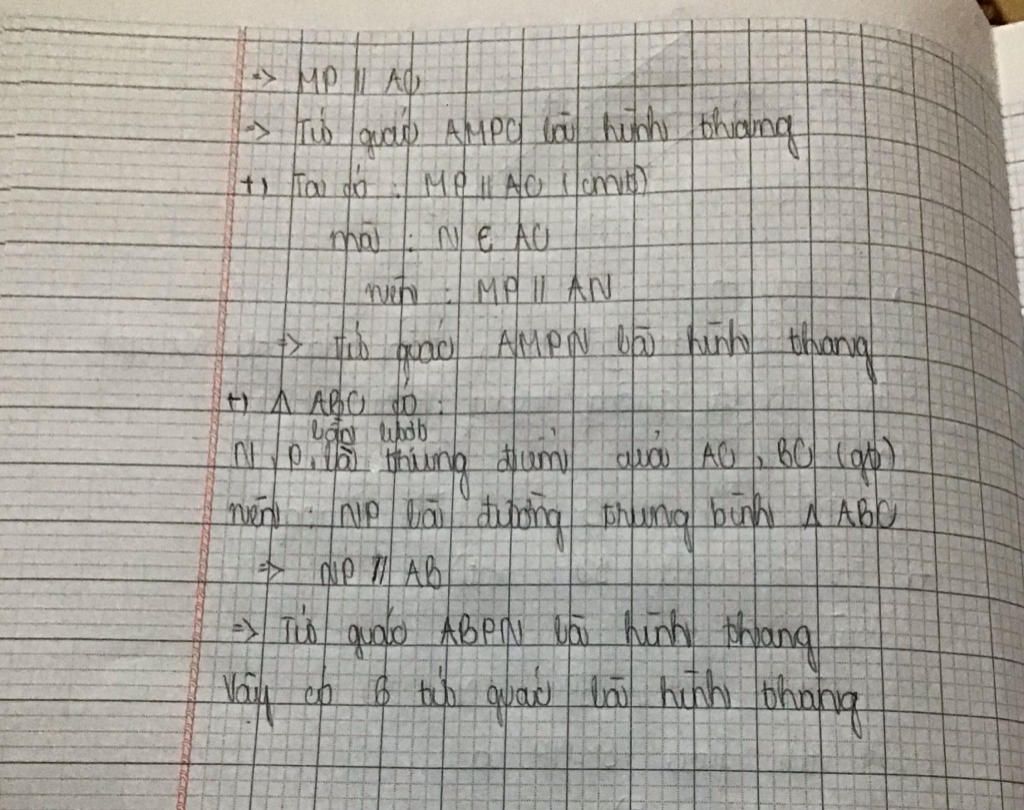 => MP // AC
=> Tứ giác AMPC là hình thang
+) Ta có : MP // AC (cmt)
mà : N ∈ AC
nên : MP // AN
=> Tứ giác AMPN là hình thang
+) Δ ABC có :
lần lượt
N, P, là trung điểm của AC, BC (gt)
nên : NP là đường trung bình Δ ABC
=> NP // AB
=> Tứ giác ABPN là hình thang
Vậy có 6 tứ giác là hình thang